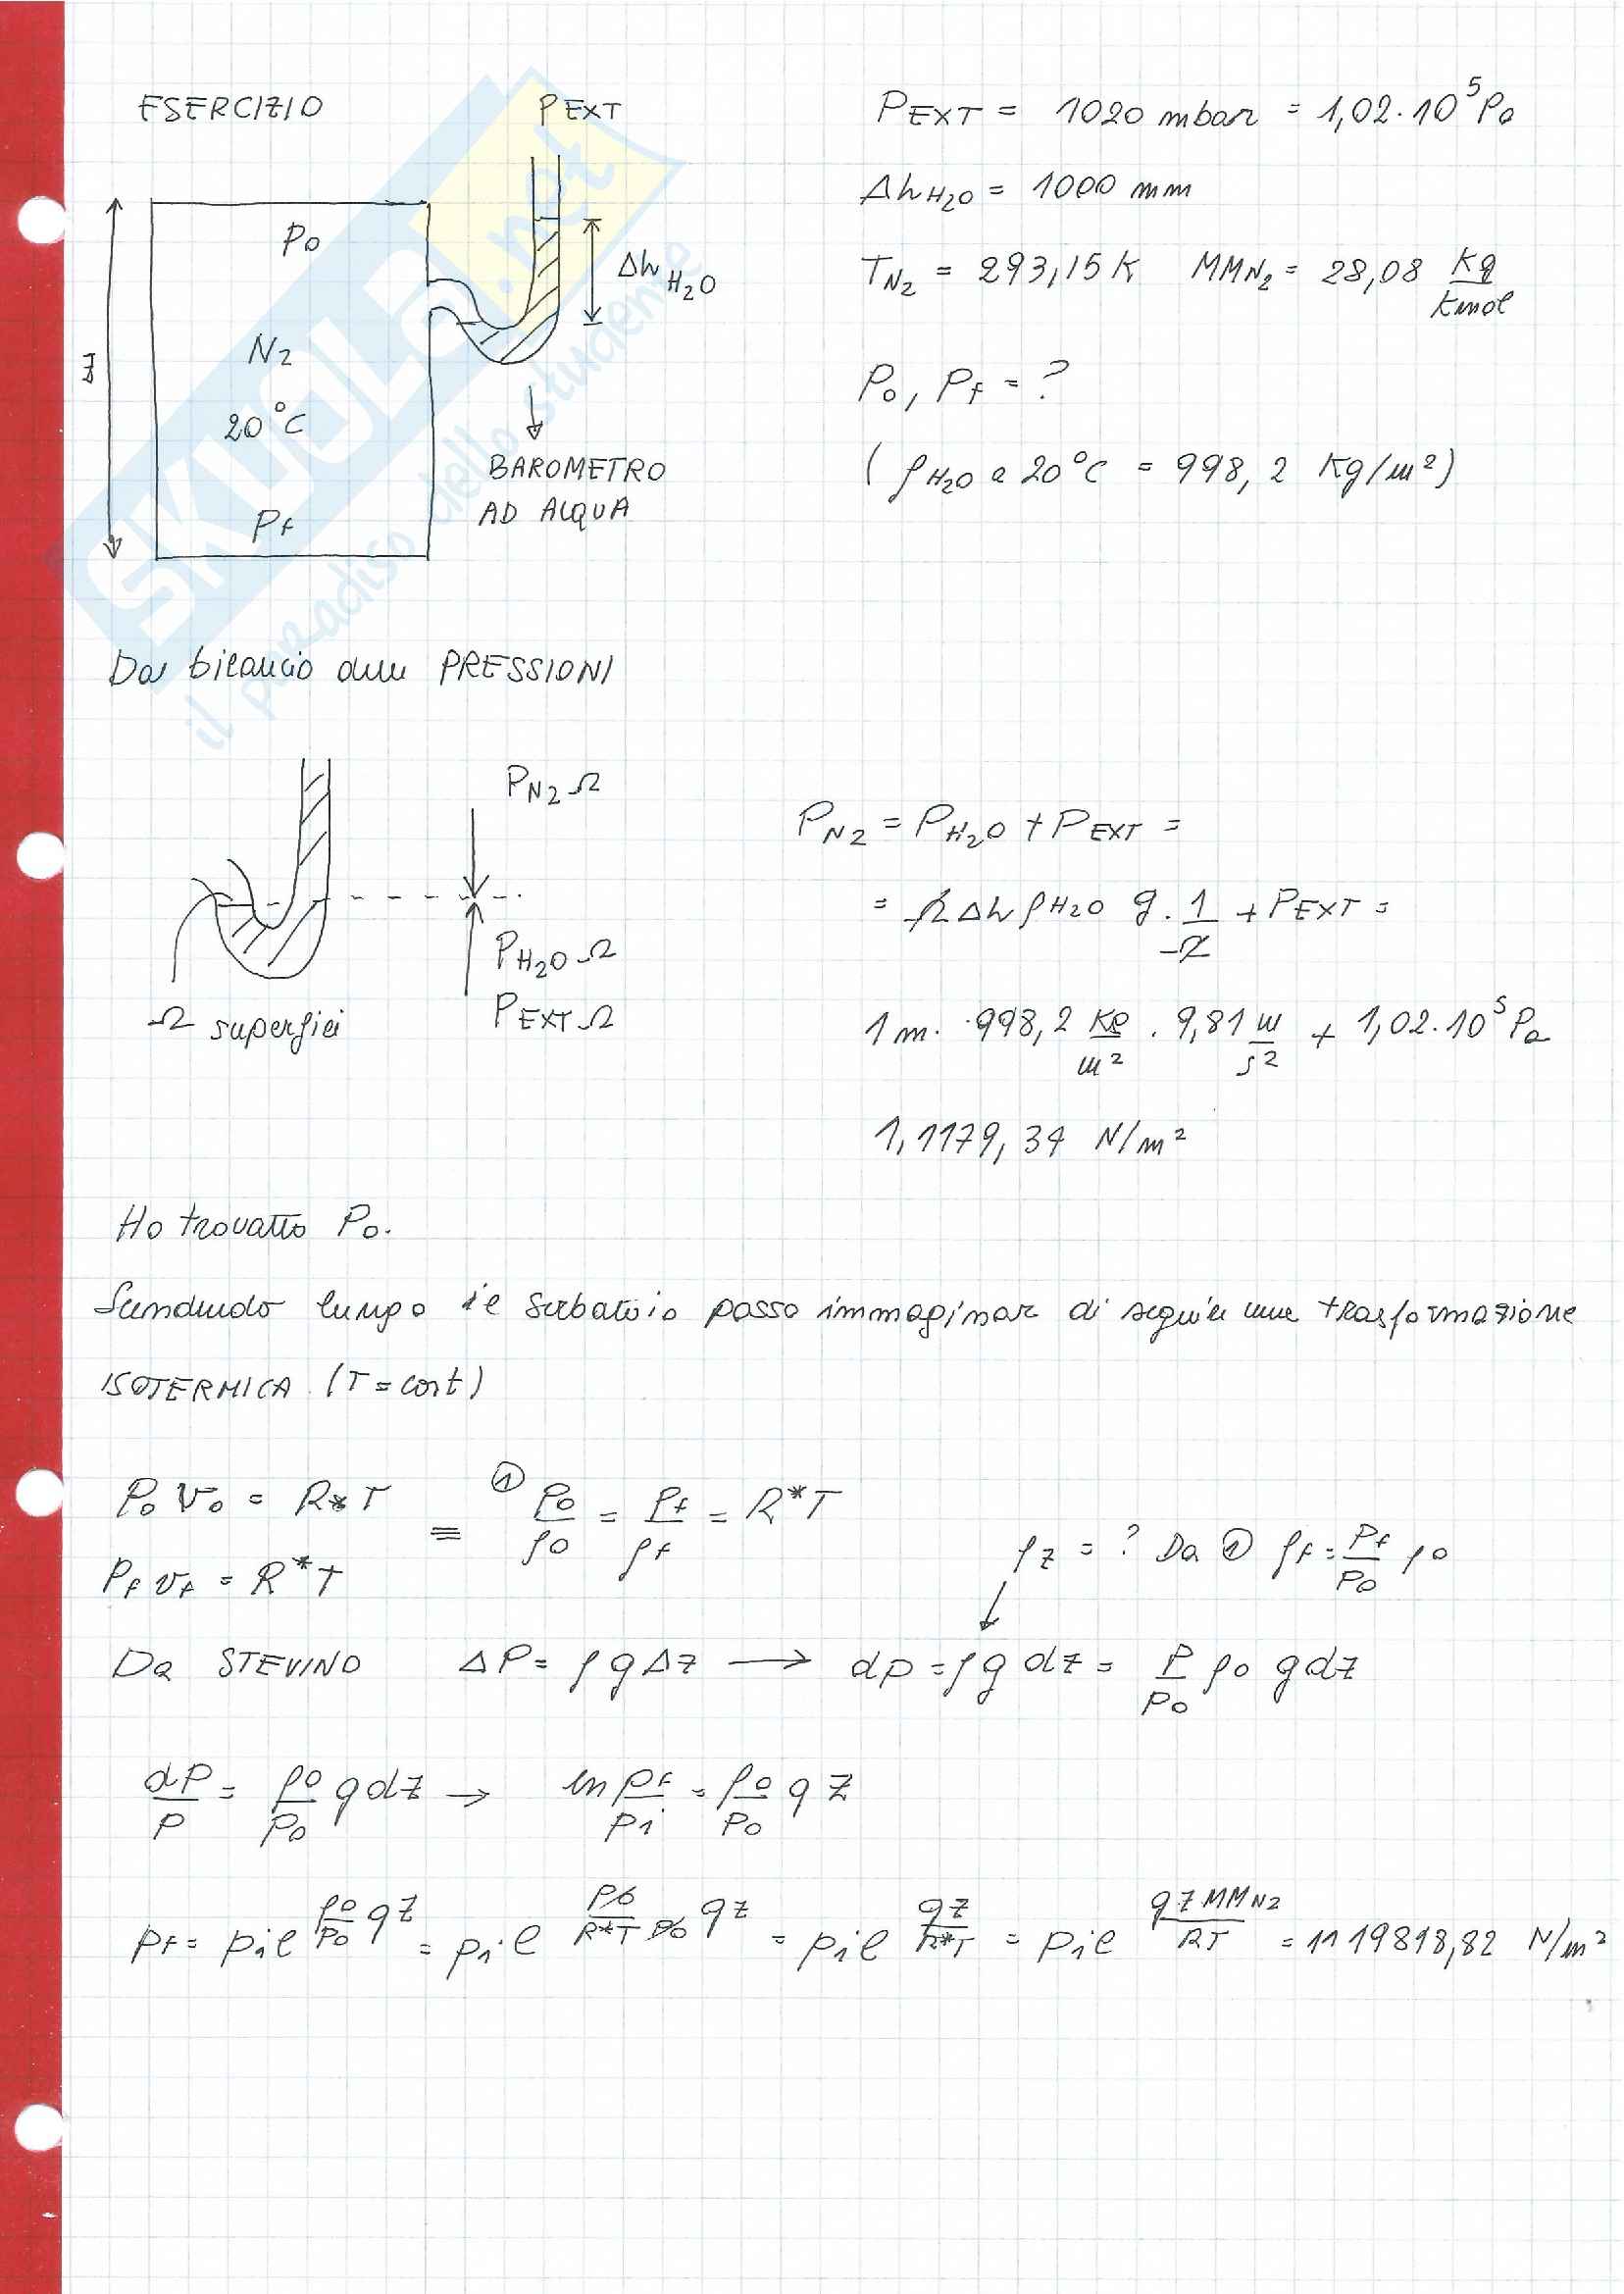 ESERCIZIO
P EXT
P EXT = 1020 mbar = 1,02·10⁵ Pa
Δh H₂O = 1000 mm
T N₂ = 293,15 K MM N₂ = 28,08 Kg/Kmol
P₀, Pf = ?
(ρ H₂O a 20°C = 998,2 Kg/m²)
P₀
N₂
20°C
Pf
Z
Δh H₂O
BAROMETRO
AD ACQUA
SKUOLA.net
il paradiso dello studente
Dal bilancio delle PRESSIONI
P N₂ Ω
P H₂O Ω
P EXT Ω
Ω superfici
P N₂ = P H₂O + P EXT =
= Ω Δh ρ H₂O g · 1/Ω + P EXT =
1 m · 998,2 Kg/m² · 9,81 m/s² + 1,02·10⁵ Pa
1,1179,34 N/m²
Ho trovatto P₀.
Scendendo lungo il serbatoio posso immaginar di seguire una trasformazione
ISOTERMICA (T = cost)
P₀ v₀ = R* T
Pf vf = R* T
≡ ① P₀/ρ₀ = Pf/ρf = R* T
ρz = ? Da ① ρf = Pf/P₀ ρ₀
Da STEVINO ΔP = ρ g Δz → dp = ρ g dz = P/P₀ ρ₀ g dz
dP/P = ρ₀/P₀ g dz → ln Pf/Pi = ρ₀/P₀ g Z
Pf = Pi e^(ρ₀/P₀ gZ) = Pi e^(P₀/(R*T P₀) gZ) = Pi e^(gZ/(R*T)) = Pi e^(gZ MM N₂/(RT)) = 1119818,82 N/m²